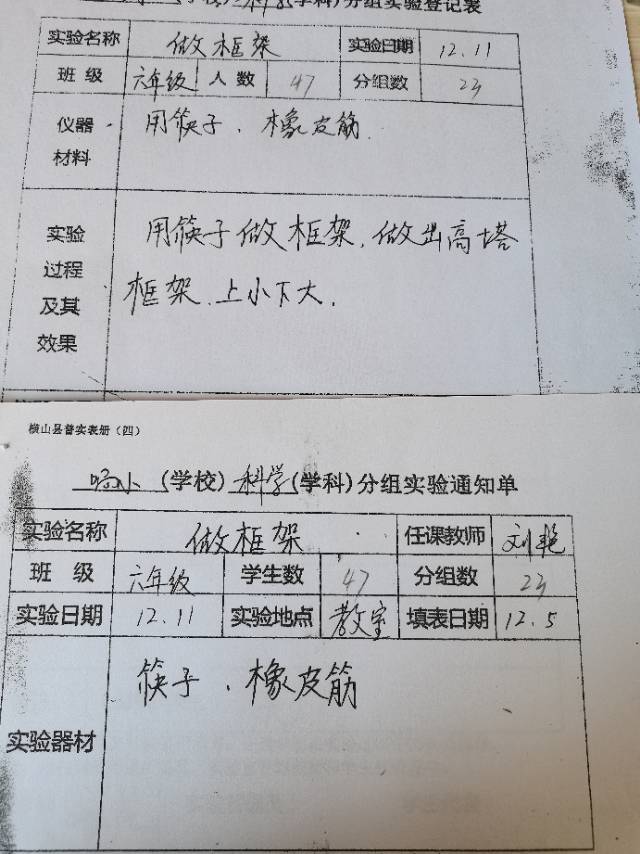 (学校) 科学(学科)分组实验登记表
实验名称 做框架 实验日期 12.11
班 级 六年级 人 数 47 分组数 23
仪器材料 用筷子、橡皮筋.
实验过程及其效果 用筷子做框架,做出高塔
框架.上小下大.
横山县普实表册(四)
响小(学校)科学(学科)分组实验通知单
实验名称 做框架 任课教师 刘艳
班 级 六年级 学生数 47 分组数 23
实验日期 12.11 实验地点 教室 填表日期 12.5
实验器材 筷子、橡皮筋